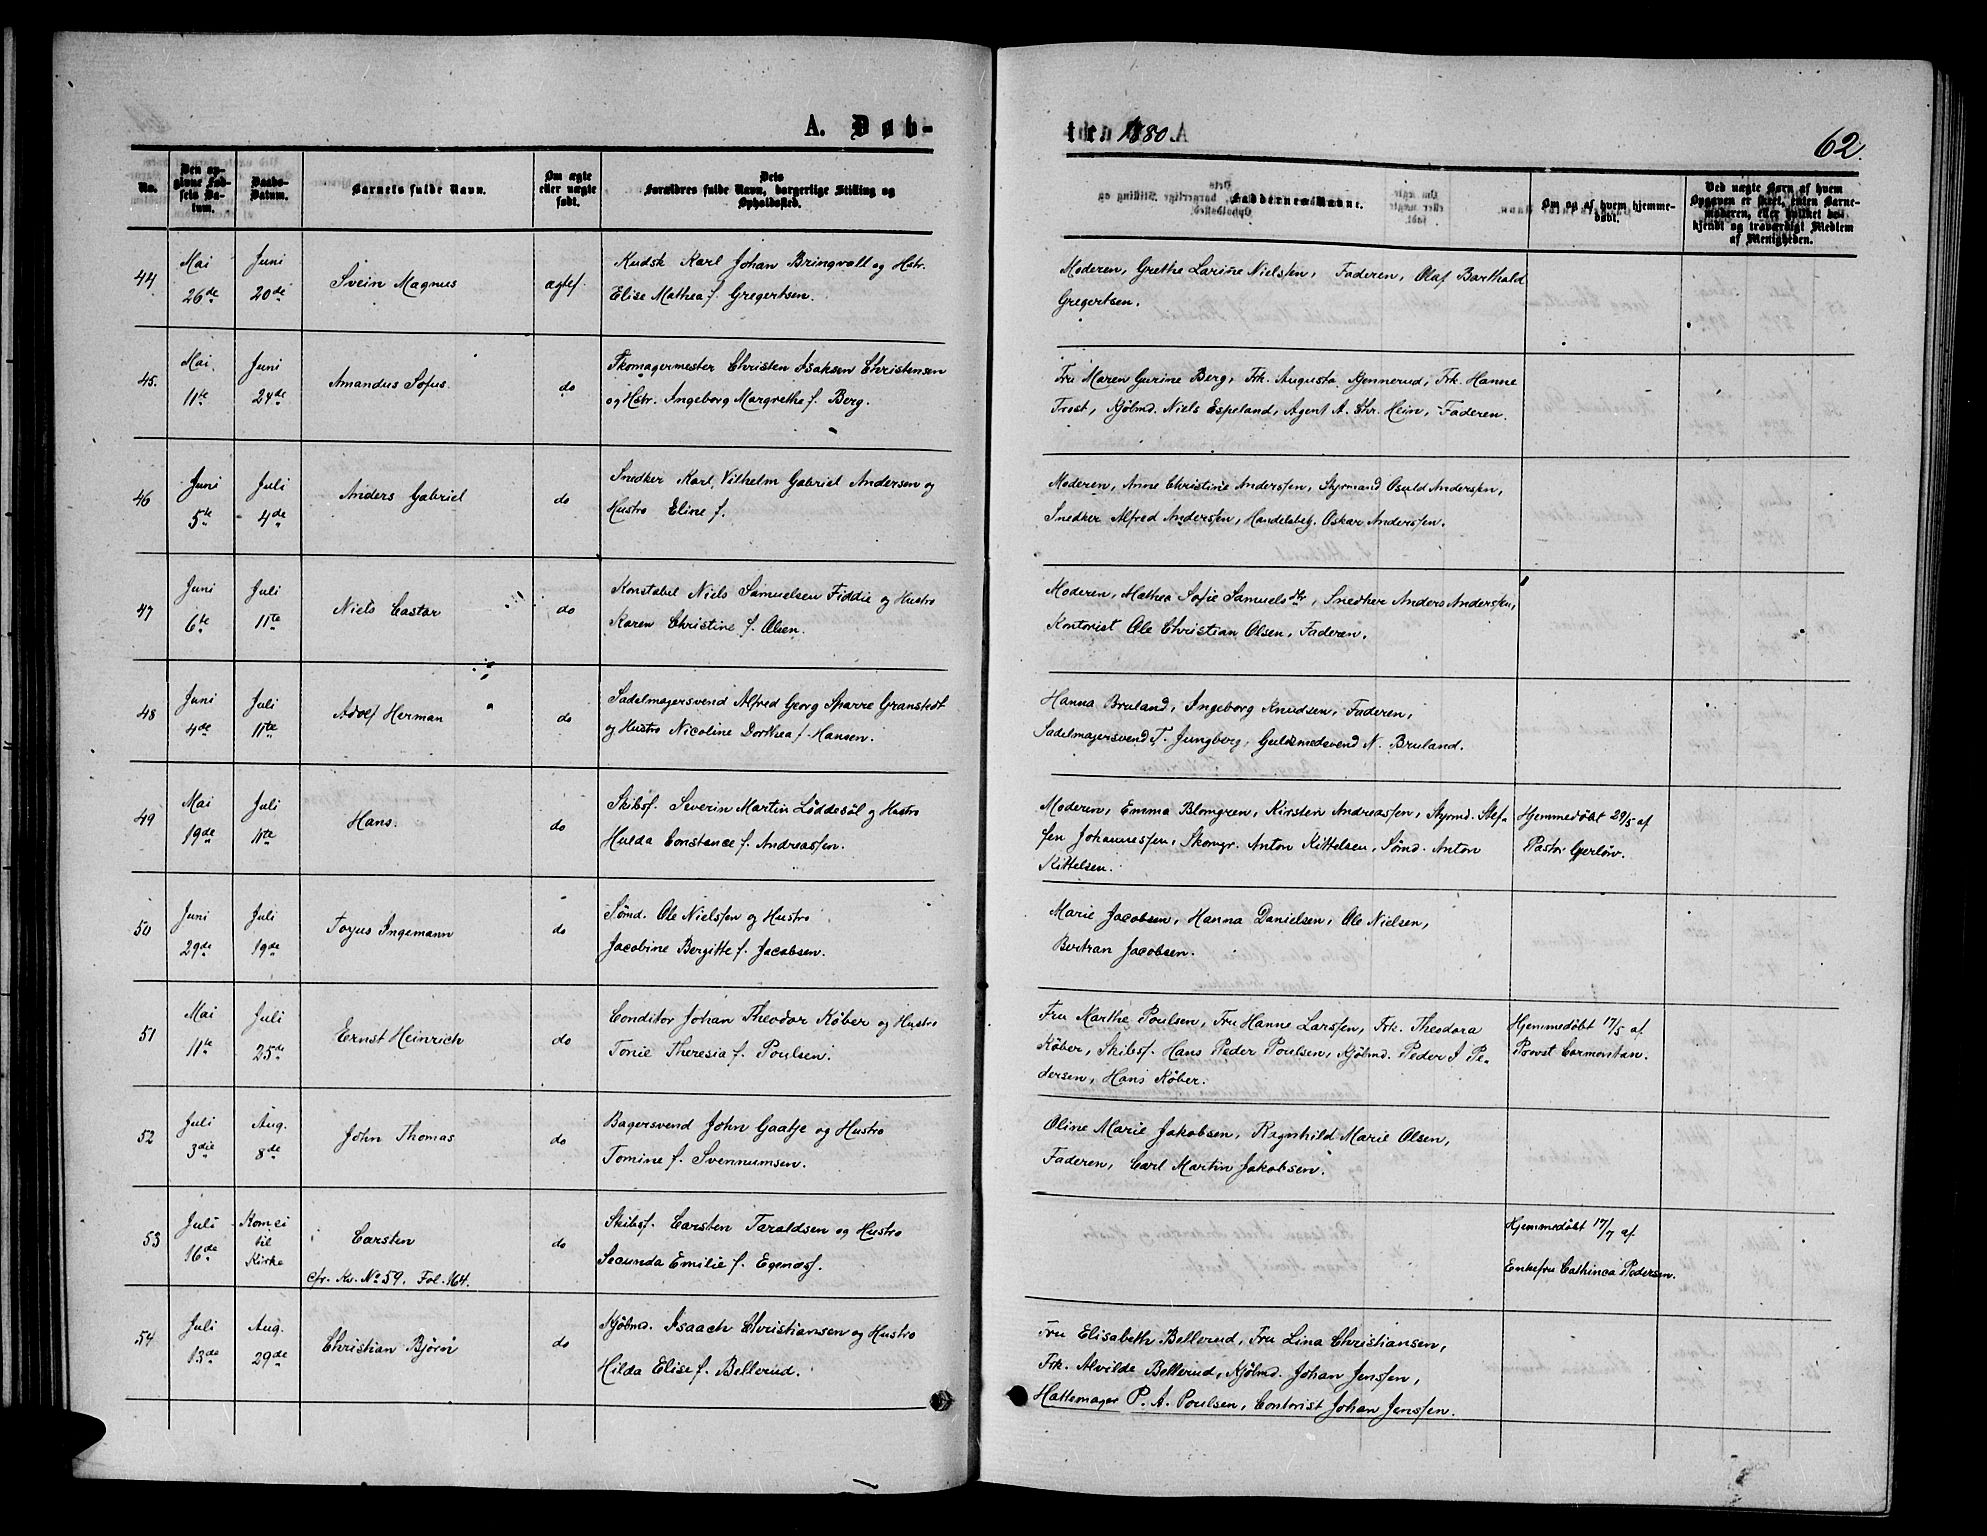 A. Døb-
No.
Den op-
givne Fød-
sels Da-
tum.
Daabs-
Datum.
Barnets fulde Navn.
Om ægte
eller uægte
født.
Dets
Forældres fulde Navn, borgerlige Stilling og
Opholdssted.
44
Mai
26de
Juni
20de
Svein Magnus
ægtef.
Kudsk Karl Johan Bringvoll og Hstr.
Elise Mathea f. Gregertsen.
45.
Mai
11te
Juni
24de
Amandus Sofus.
do
Skomagermester Christen Isaksen Christensen
og Hstr. Ingeborg Margrethe f. Berg.
46
Juni
5te
Juli
4de
Anders Gabriel
do
Snedker Karl Vilhelm Gabriel Andersen og
Hustro Eline f.
47
Juni
6te
Juli
11te
Niels Castor
do
Konstabel Niels Samuelsen Fiddie og Hustro
Karen Christine f. Olsen.
48
Juni
4de
Juli
11te
Adolf Herman
do
Sadelmagersvend Alfred Georg Sparre Granstedt
og Hustro Nicoline Dorthea f. Hansen.
49
Mai
19de
Juli
11te
Hans.
do
Skibsf. Severin Martin Løddesøl og Hustro
Hulda Constance f. Andreassen.
50
Juni
29de
Juli
19de
Torjus Ingemann
do
Sømd. Ole Nielssen og Hustro
Jacobine Bergitte f. Jacobsen.
51
Mai
11te
Juli
25de
Ernst Heinrich
do
Conditor Johan Theodor Køber og Hustro
Tonie Theresia f. Poulsen.
52
Juli
3die
Aug.
8de
John Thomas
do
Bagersvend John Gaatje og Hustro
Tomine f. Svennumsen.
53
Juli
16de
Kom ei
til
Kirke
Carsten
cfr. Kv. No 59. Fol. 164.
do
Skibsf. Carsten Taraldsen og Hustro
Secunda Emilie f. Egenæs.
54
Juli
13de
Aug.
29de
Christian Bjørn
do
Kjøbmd. Isaach Christiansen og Hustro
Hilda Elise f. Bellerud.
te 1880.
62.
Faddernes Navne.
Om og af hvem hjemme-
døbt.
Ved uægte Børn af hvem
Opgaven er skeet, enten Barne-
moderen, eller hvilket be-
kjendt og troværdigt Medlem
af Menigheden.
Moderen, Grethe Larine Nielsen, Faderen, Olaf Barthald
Gregertsen.
Fru Maren Gurine Berg, Frk. Augusta Kjennerud, Frk. Hanne
Trost, Kjølmd. Niels Espeland, Agent A. Chr. Hein, Faderen.
Moderen, Anne Christine Anderssen, Styrmand Osuld Anderssen,
Snedker Alfred Anderssen, Handelsbetj. Oskar Anderssen.
Moderen, Mathea Sofie Samuelsdtr, Snedker Anders Anderssen,
Kontorist Ole Christian Olsen, Faderen.
Hanna Bruland, Ingeborg Knudsen, Faderen,
Sadelmagersvend T. Jungberg, Guldsmedsvend N. Bruland.
Moderen, Emma Blomgren, Kirsten Andreassen, Styrmd. Stef-
fen Johannessen, Skomgr. Anton Kittelsen, Sømd. Anton
Kittelsen.
Hjemmedøbt 29/5 af
Pastor Gerløw.
Marie Jacobsen, Hanna Danielsen, Ole Nielsen,
Bertran Jacobsen.
Fru Marthe Poulsen, Fru Hanne Larssen, Frk. Theodora
Køber, Skibsf. Hans Peder Poulsen, Kjølmd. Peder I Pe-
dersen, Hans Køber.
Hjemmedøbt 17/5 af
Provst Cormontan.
Oline Marie Jakobsen, Ragnhild Marie Olsen,
Faderen, Carl Martin Jakobsen.
Hjemmedøbt 17/7 af
Enkefru Cathinca Pedersen.
Fru Elisabeth Bellerud, Fru Lina Christiansen,
Frk. Alvilde Bellerud, Kjølmd. Johan Jenssen,
Hattemager P. A. Poulsen, Contorist Johan Jenssen.